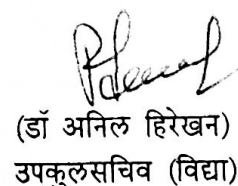 (डॉ अनिल हिरेखन)
उपकुलसचिव (विद्या)